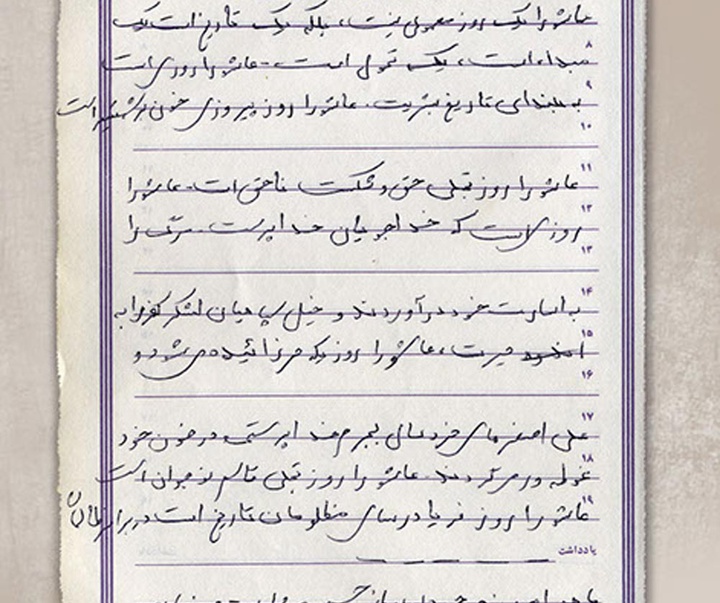 عاشورا یک روز معمولی نیست، بلکه یک تاریخ است یک
۸
مبداء است، یک تحول است. عاشورا روزی است
۹
به بلندای تاریخ بشریت. عاشورا روز پیروزی خون بر شمشیر است
۱۰
۱۱
عاشورا روز تجلی حق و شکست ناحق است. عاشورا
۱۲
روزی است که خداجویان خداپرست
۱۳
۱۴
به اسارت خود درآوردند و خیل سپاهیان لشکر کفر را به
۱۵
حیرت، عاشورا روزیکه می‌شود و
۱۶
۱۷
علی اصغرهای خردسال در خون خود
۱۸
غوطه‌ور می‌گردند. عاشورا روز تجلی قاسم نوجوان است
۱۹
عاشورا روز فریاد رسای مظلومان تاریخ است در برابر ظالمان
یادداشت